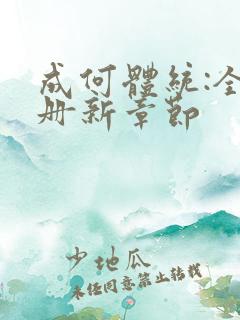 成何體統:全
册新章節
少地瓜
未任同意禁止转载